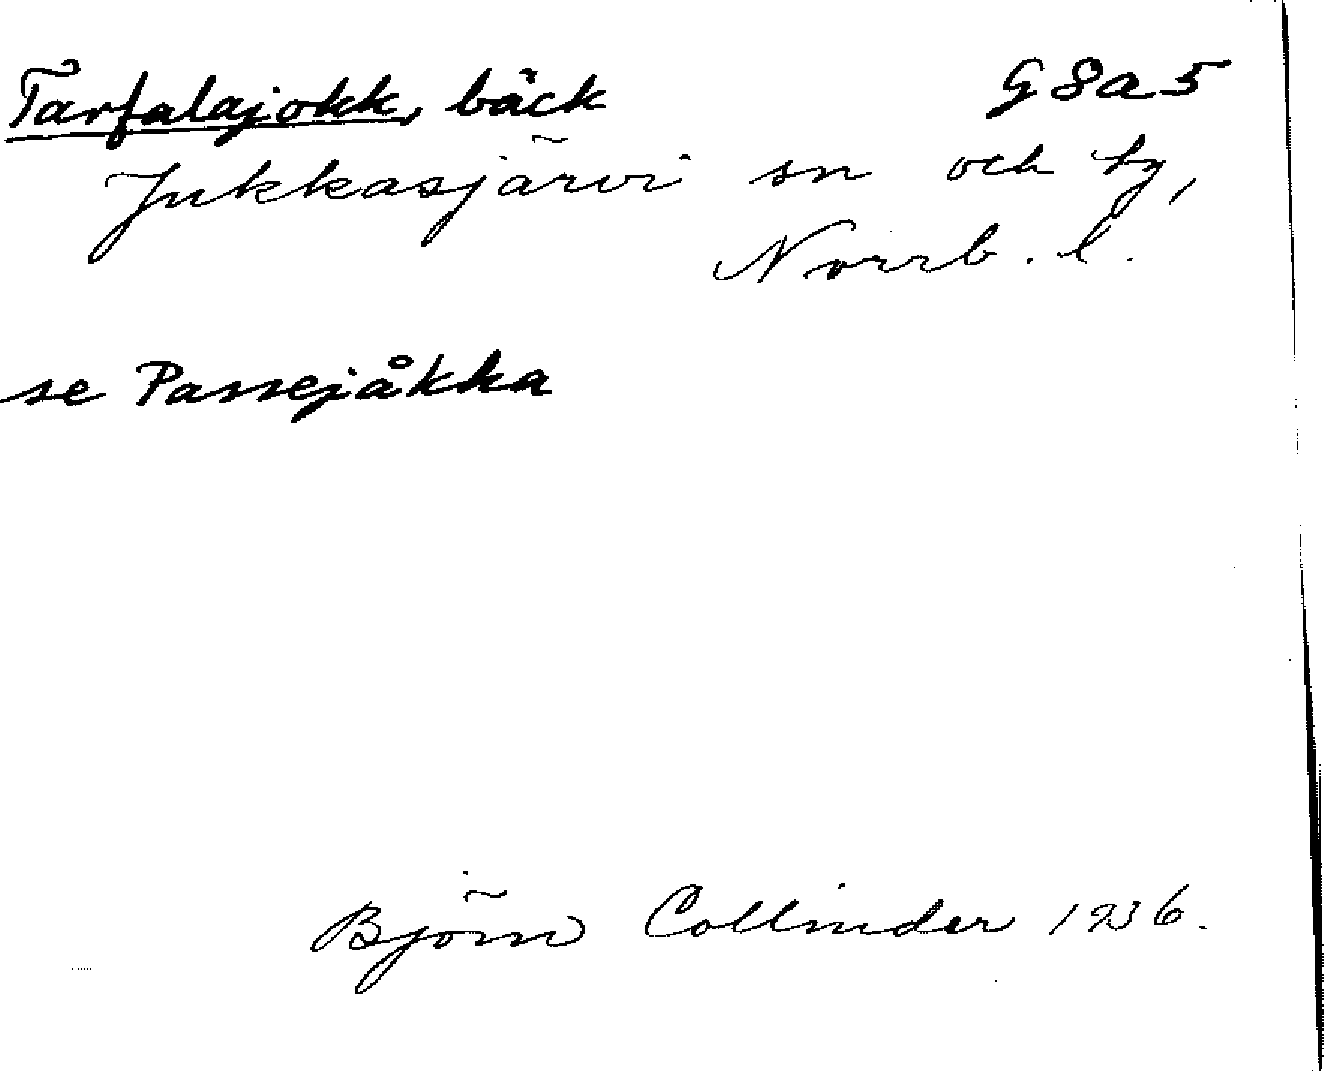 Tarfalajokk, bäck G8a5
Jukkasjärvi sn och tg,
Norrb. l.
se Passejåkka
Björn Collinder 1936.